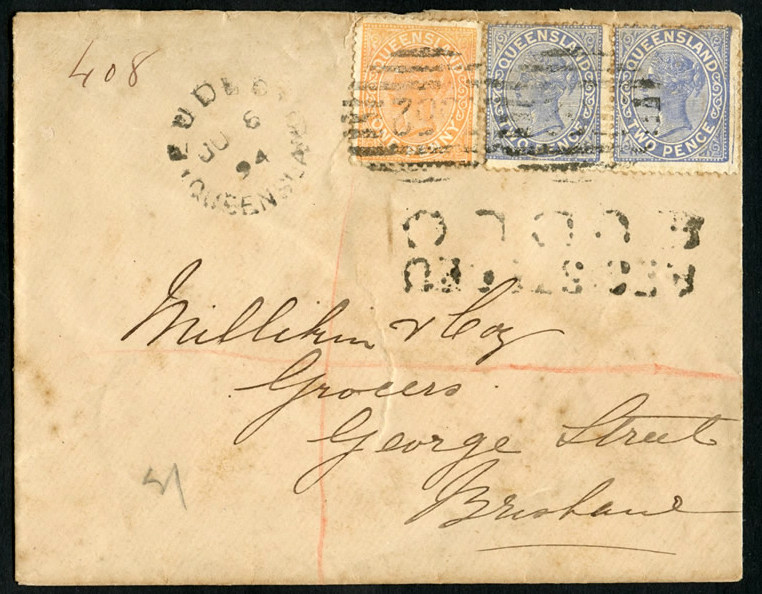 408
QUEENSLAND
ONE PENNY
QUEENSLAND
TWO PENCE
QUEENSLAND
TWO PENCE
JU 6
94
QUEENSLAND
REGISTERED
Millikin & Coy
Grocers
George Street
Brisbane